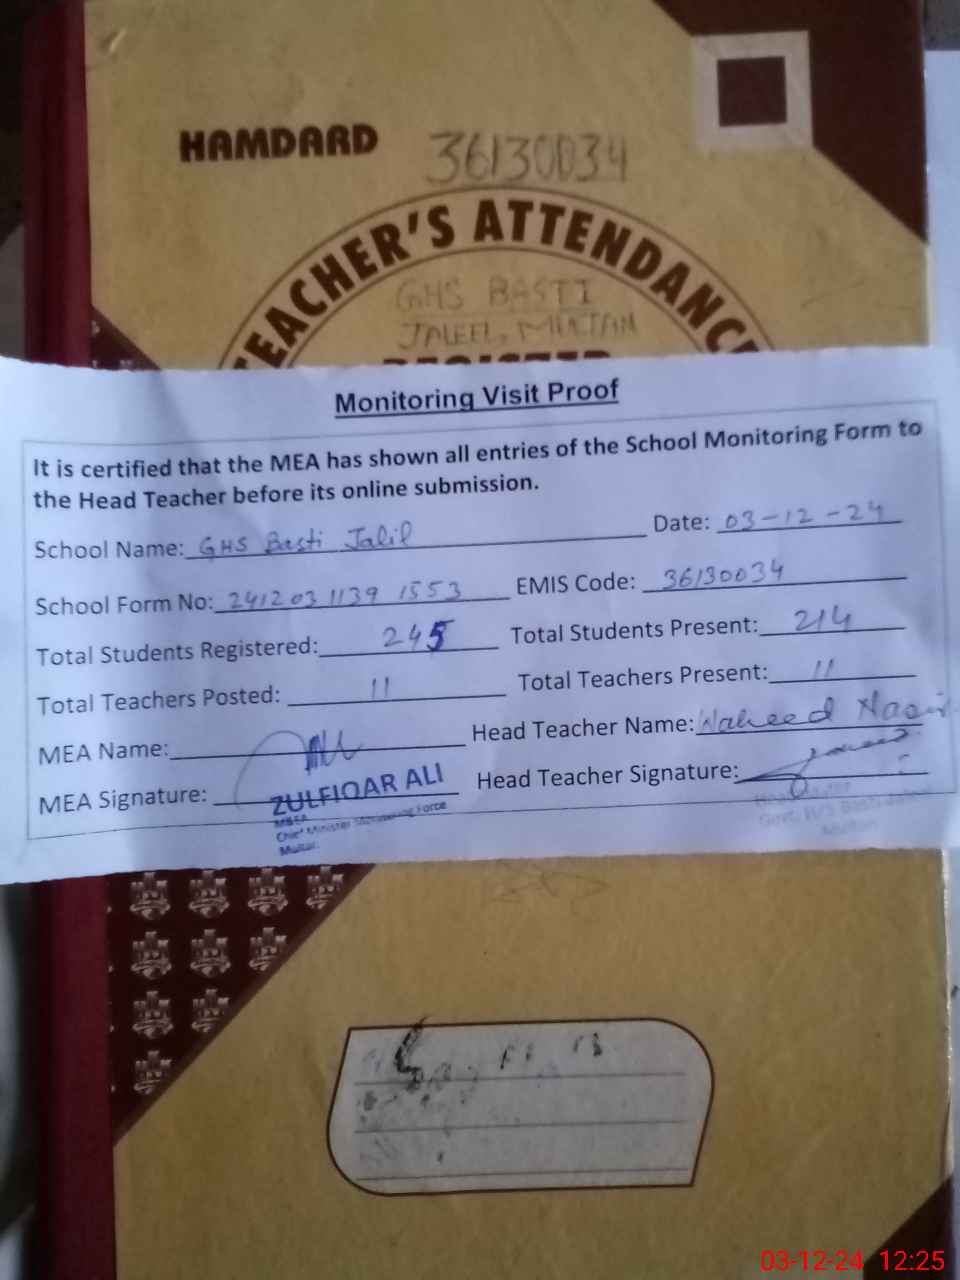 HAMDARD
36130034
TEACHER'S ATTENDANCE
GHS BASTI
JALEEL, MULTAN
REGISTER
Monitoring Visit Proof
It is certified that the MEA has shown all entries of the School Monitoring Form to
the Head Teacher before its online submission.
School Name: GHS Basti Jalil Date: 03-12-24
School Form No: 2412031139 1553 EMIS Code: 36130034
Total Students Registered: 245 Total Students Present: 214
Total Teachers Posted: 11 Total Teachers Present: 11
MEA Name: Head Teacher Name: Waheed Nasir
MEA Signature: Head Teacher Signature:
ZULFIQAR ALI
M&EA
Chief Minister Monitoring Force
Multan.
Govt. H/S Basti Jaleel
Multan
03-12-24 12:25